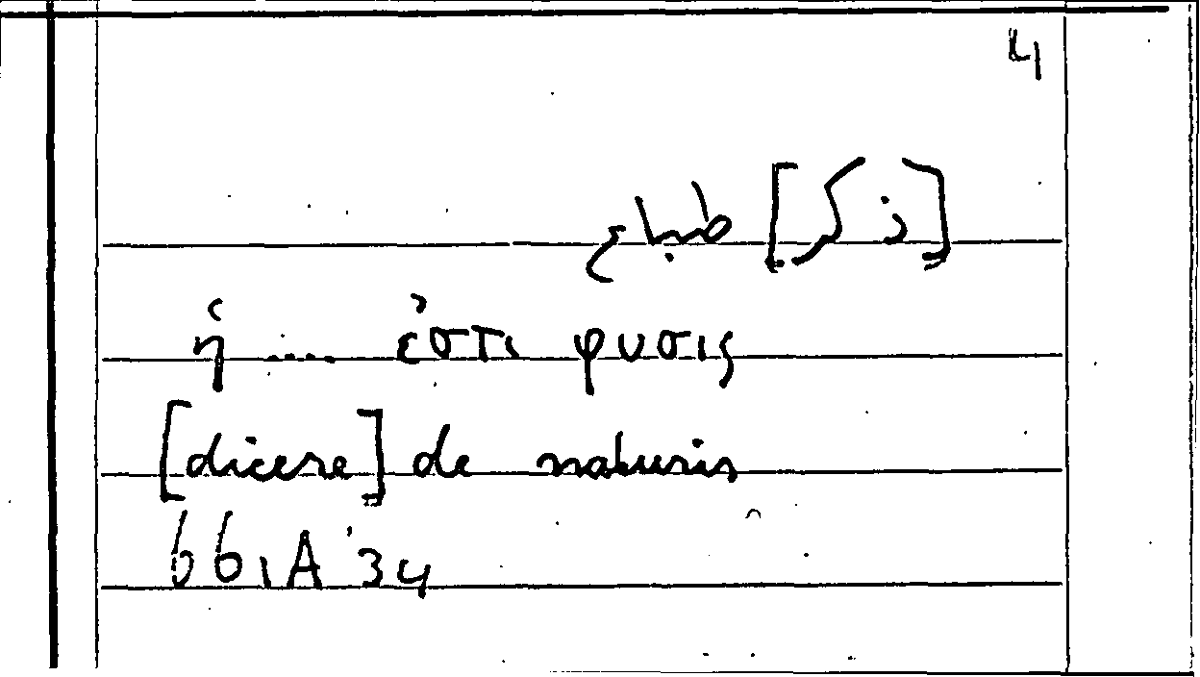 4
[ذكر] طبائع
ἡ .... ἐστι φυσις
[dicere] de naturis
661A 34